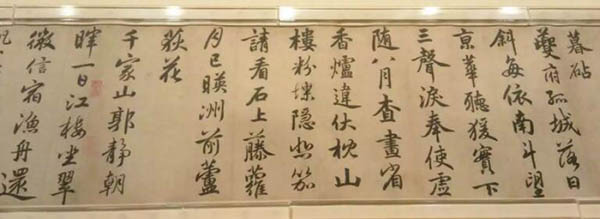 暮砧
夔府孤城落日
斜每依南斗望
京華聽猨實下
三聲淚奉使虛
随八月查畫省
香爐違伏枕山
樓粉堞隐悲笳
請看石上藤蘿
月已暎洲前蘆
荻花
千家山郭靜朝
暉一日江樓坐翠
微信宿漁舟還